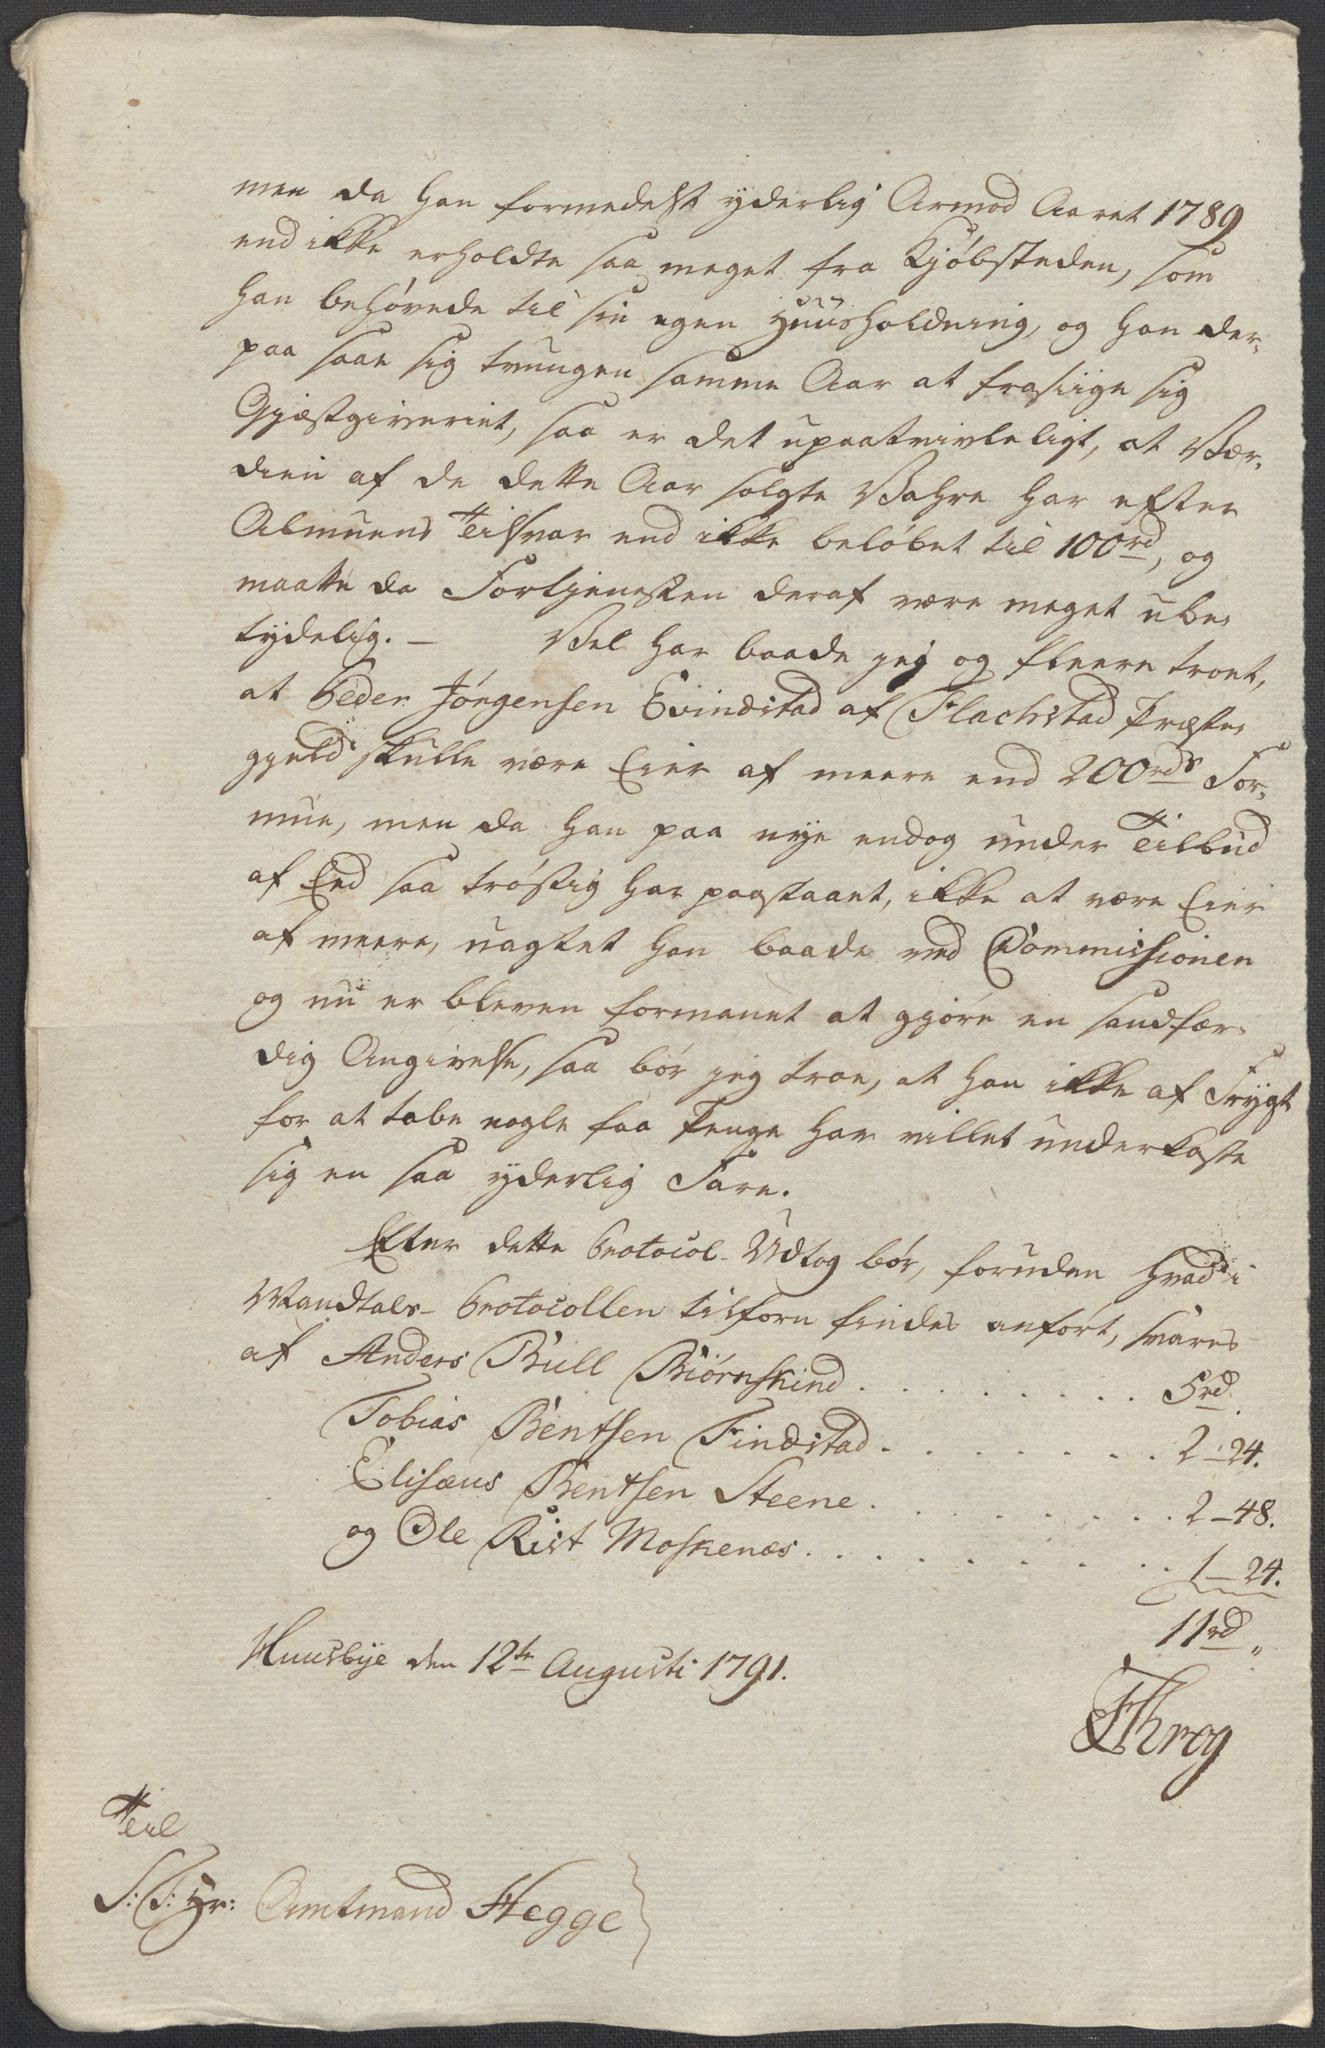 men da han formedelst yderlig Armod Aaret 1789
end ikke erholdte saa meget fra Kjøbsteden, som
han behøvede til sin egen Huusholdning, og han der-
paa saae sig tvungen samme Aar at frasiige sig
Gjæstgiveriet, saa er det upaatvivleligt, at Vær-
dien af de dette Aar solgte Vahre har efter
Almuens Tilsvar end ikke beløbet til 100rd, og
maatte da Fortjenesten deraf være meget ube-
tydelig. — Vel har baade jeg og fleere troet,
at Peder Jørgensen Evindstad af Flachstad Præste-
gjeld skulle være Eier af meere end 200rds For-
mue, men da han paa nye endog under Tilbud
af Eed saa trøstig har paastaaet, ikke at være Eier
af meere, uagtet han baade ved Commissionen
og nu er bleven formanet at gjøre en sandfær-
dig Angivelse, saa bør jeg troe, at han ikke af Frygt
for at tabe nogle faa Penge har villet underkaste
sig en saa yderlig Fare.
Efter dette Protocol-Udtog bør, foruden hvad i
Mandtals-Protocollen tilforn findes anført, svares
af Anders Bull Biørnskind . . . . . . . . 5rd.
Tobias Bentsen Findstad . . . . . . . . 2-24.
Elisæus Bentsen Steene . . . . . . . . 2-48.
og Ole Rist Moskenæs . . . . . . . . 1-24.
11rd „
Huusbye den 12te Augusti 1791.
JThrog
Til
S: T: Hr: Amtmand Hegge